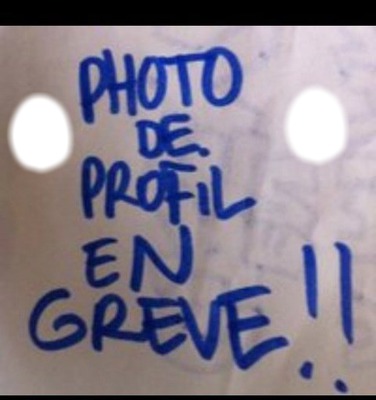 PHOTO
DE.
PROFIL
EN
GREVE!!